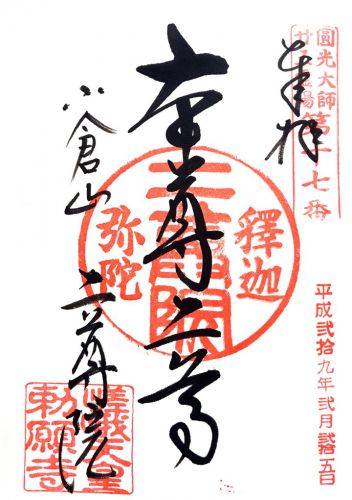 圓光大師
廿五霊場
第十七番
奉拝
平成弐拾九年弐月弐拾五日
本尊二尊
釋迦
弥陀
小倉山
二尊院
嵯峨天皇
勅願寺